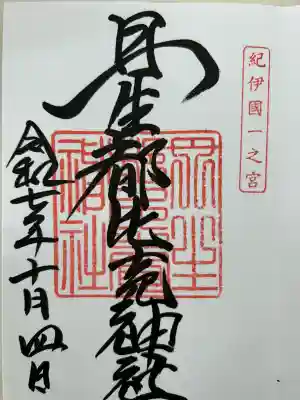 紀伊國一之宮
丹生都比売神社
令和七年十月四日